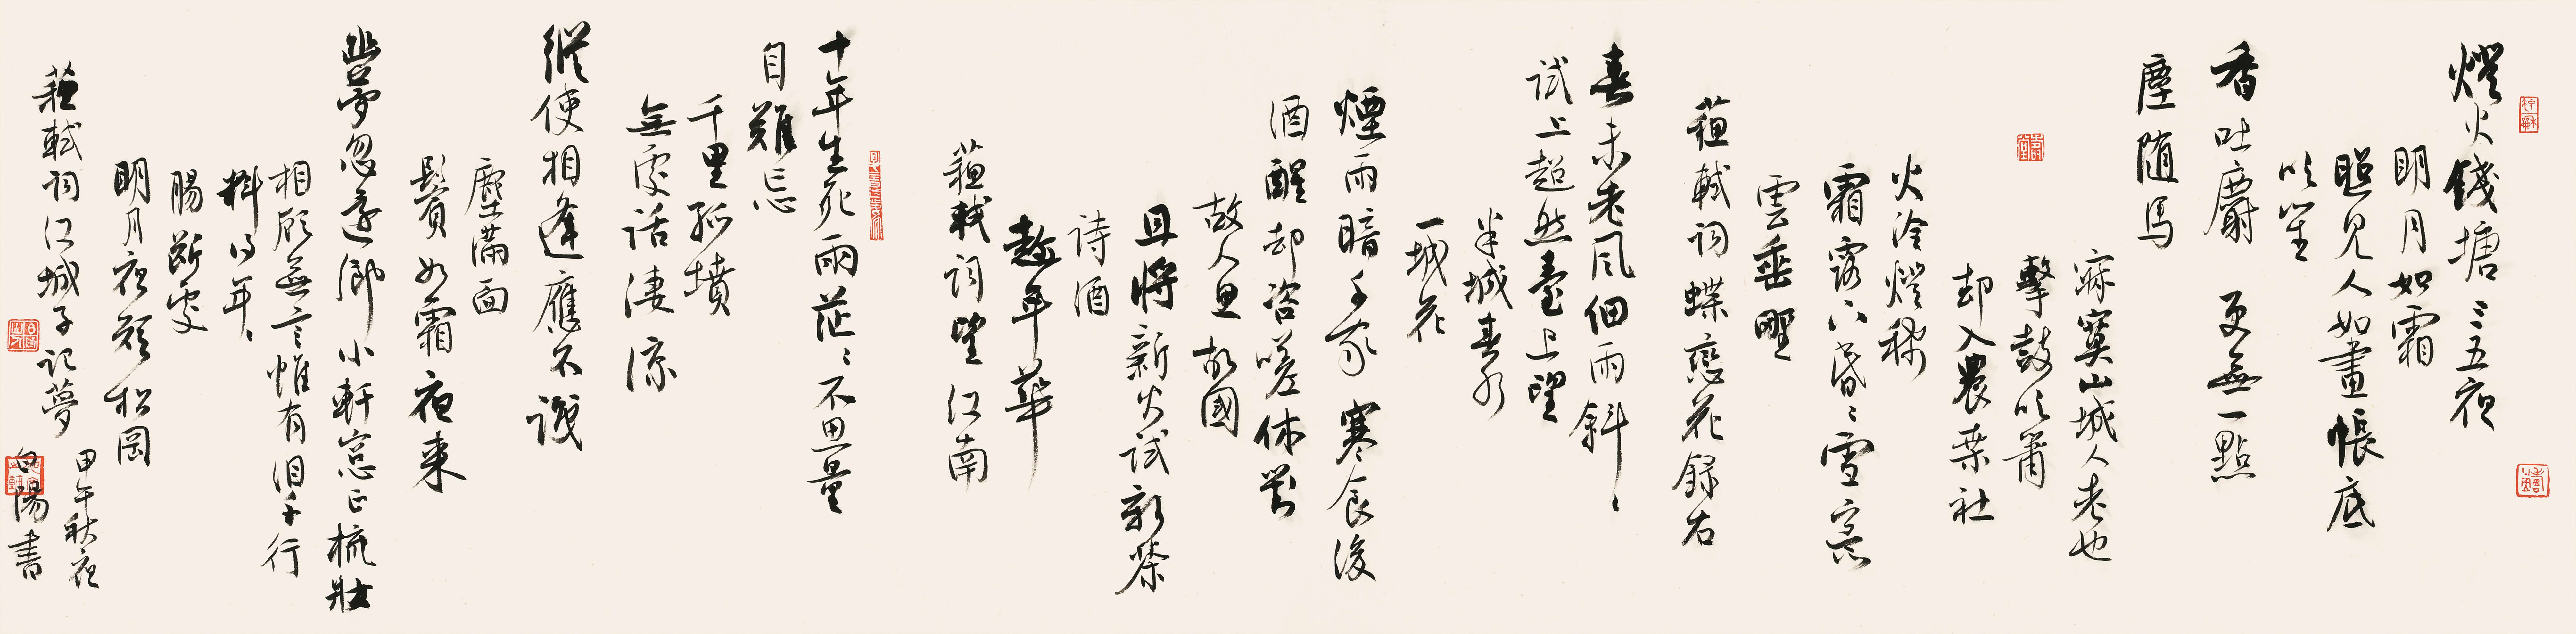 燈火錢塘三五夜
明月如霜
照見人如畫帳底
吹笙
香吐麝更無一點
塵隨馬
寂寞山城人老也
擊鼓吹簫
却入農桑社
火冷燈稀
霜露下昏〻雪意
雲垂野
蘇軾詞蝶戀花録右
春未老風細雨斜〻
試上超然臺上望
半城春水
一城花
煙雨暗千家寒食後
酒醒却咨嗟休對
故人思故國
且將新火試新茶
詩酒
趁年華
蘇軾詞望江南
十年生死兩茫〻不思量
自難忘
千里孤墳
無處話淒涼
縱使相逢應不識
塵滿面
鬢如霜夜來
幽夢忽還鄉小軒窗正梳妝
相顧無言惟有泪千行
料得年〻
腸斷處
明月夜短松岡
蘇軾詞江城子記夢
甲午秋夜
陽書